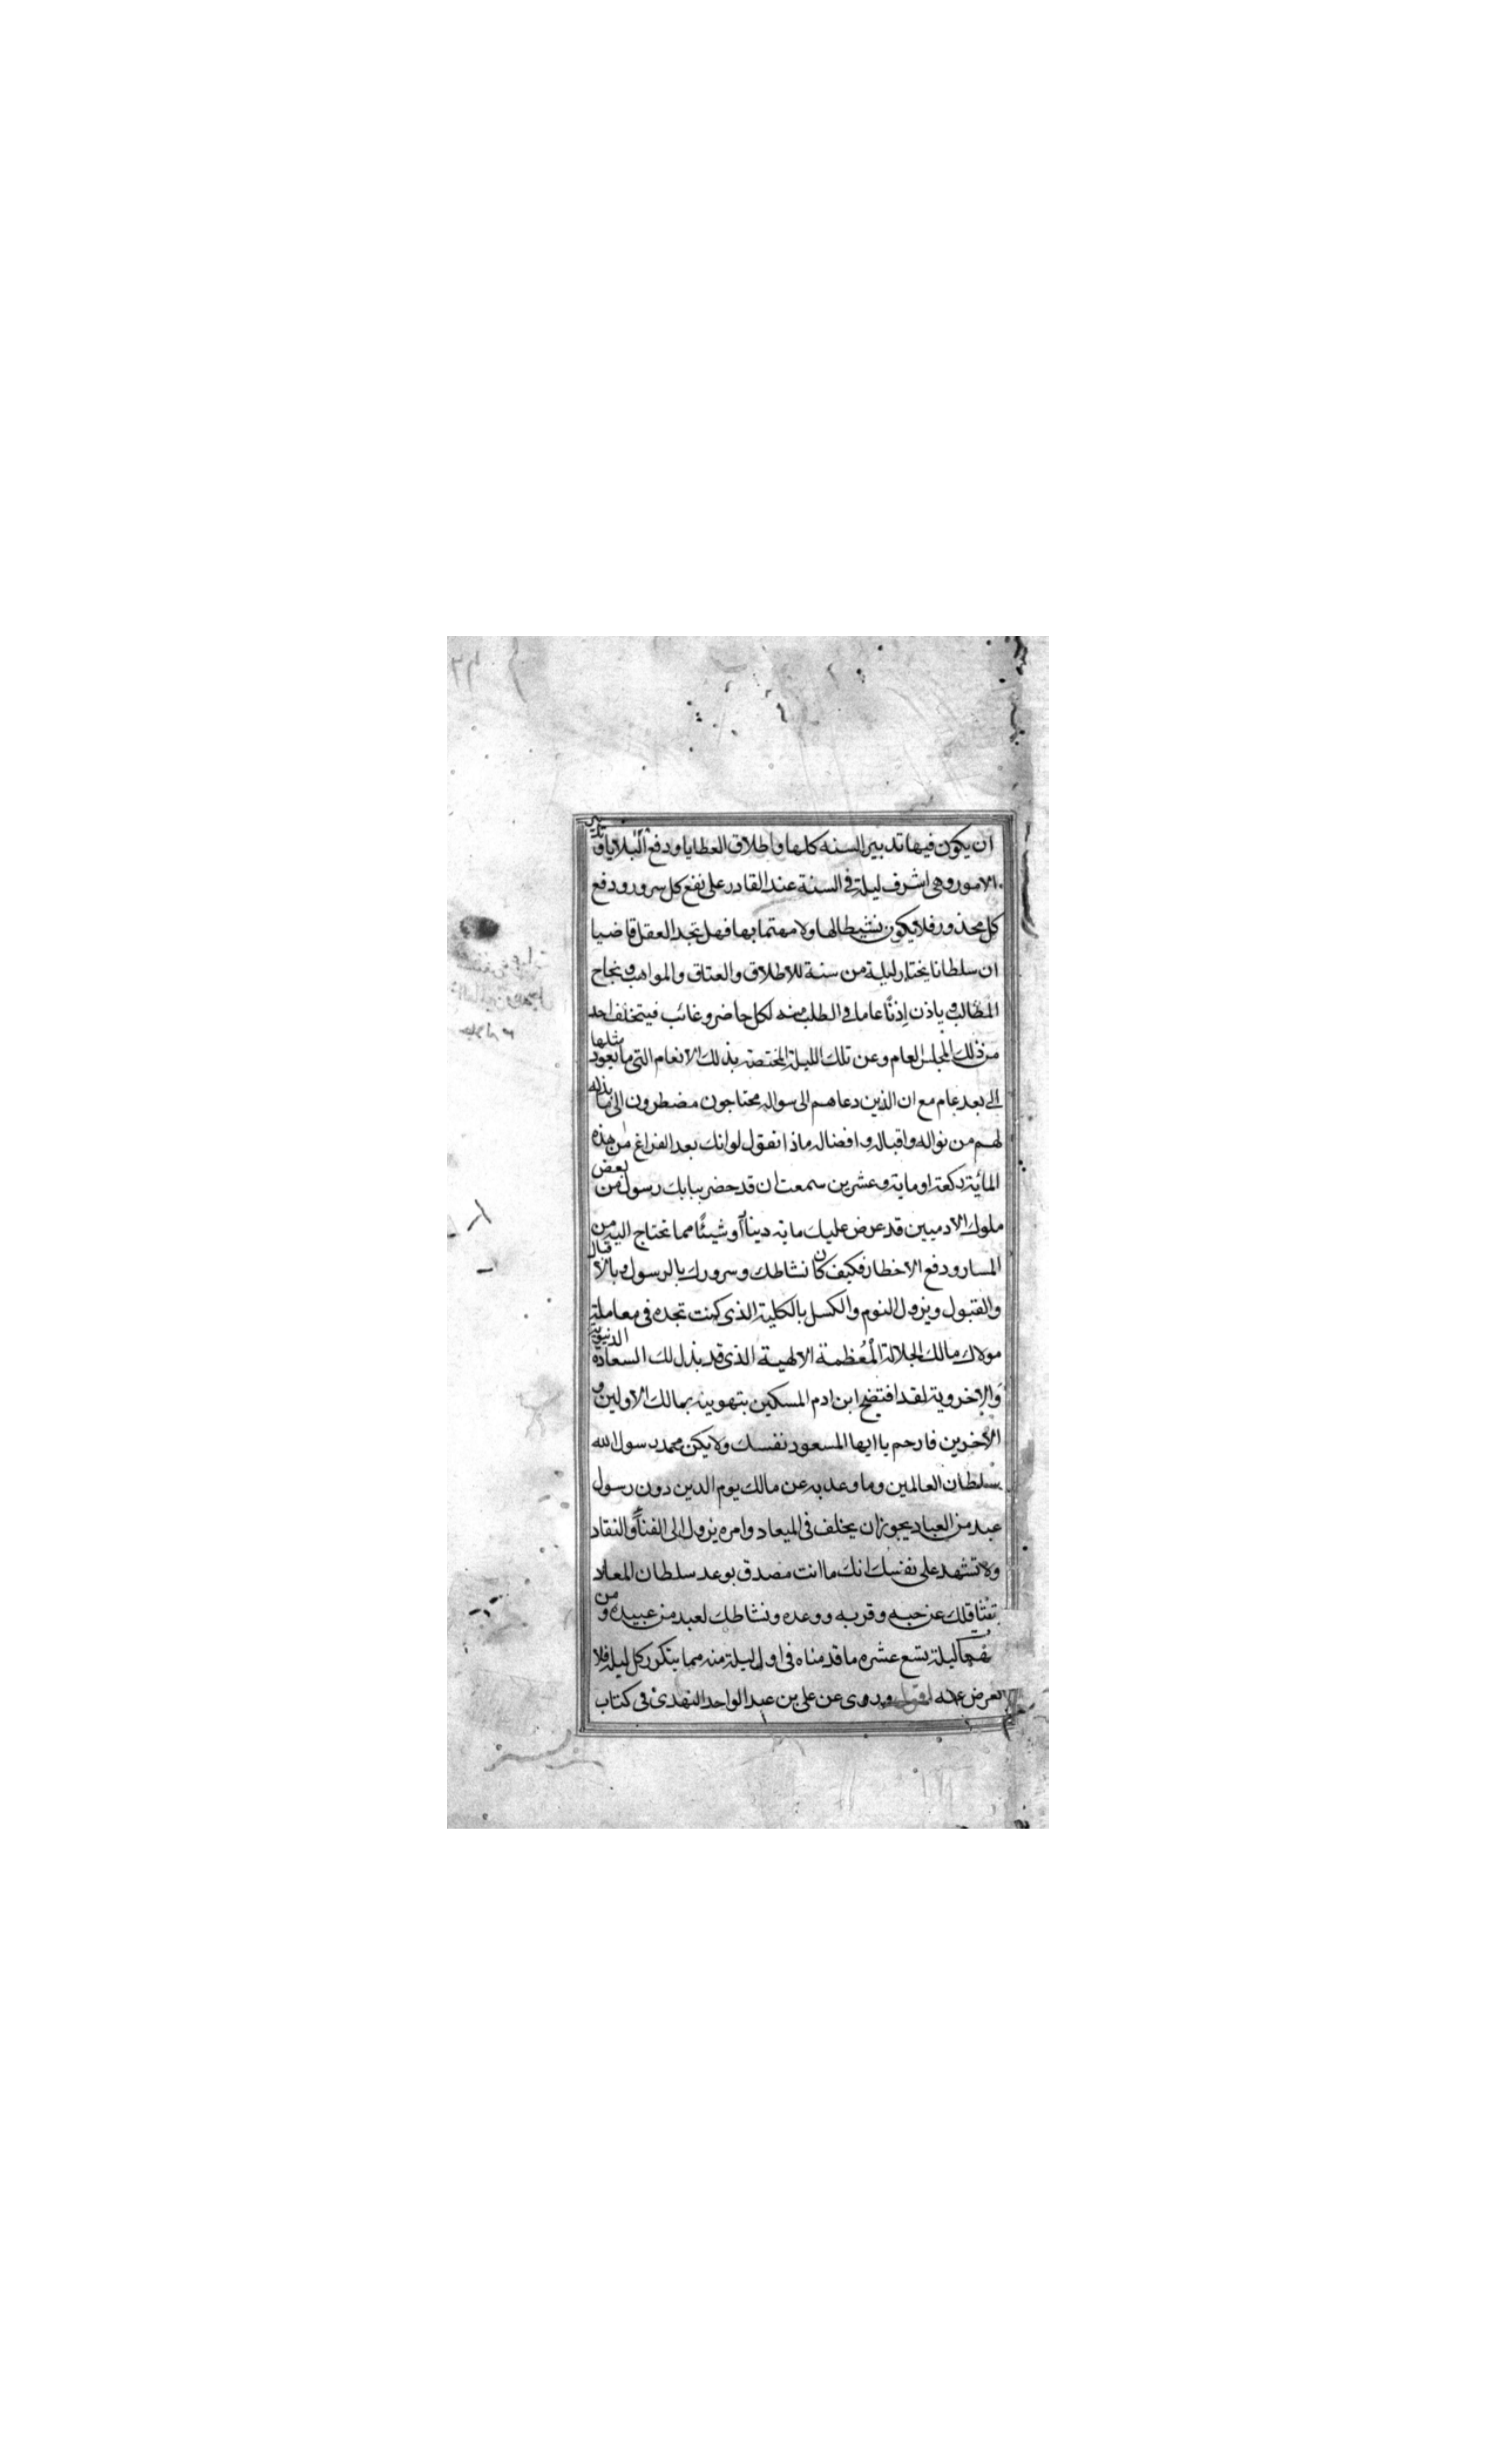 ان يكون فيها تدبير السنه كلها واطلاق العطايا ودفع البلايا و تدبير
الامور وهى اشرف ليلة فى السنة عند القادر على نفع كل سرور ودفع
كل محذور فلا يكون نشيطا لها ولا مهتما بها فهل تجد العقل قاضيا
ان سلطانا يختار ليلة من سنة للاطلاق والعتاق والمواهب ونجاح
المطالب و ياذن إذنًا عاما فى الطلب منه لكل حاضر وغائب فيتخلف احد
من ذلك المجلس العام وعن تلك الليلة المختصة بذلك الانعام التى ما يعود مثلها
إلى بعد عام مع ان الذين دعاهم الى سواله محتاجون مضطرون الى ما بذله
لهم من نواله واقباله وافضاله ماذا تقول لو انك بعد الفراغ من هذه
المائية ركعة او ماية وعشرين سمعت ان قد حضر ببابك رسول من بعض
ملوك الادميين قد عرض عليك ماية دينار أو شيئًا مما تحتاج اليه من
المسار ودفع الاخطار فكيف كان نشاطك وسرورك بالرسول وبالاقبال
والقبول ويزول النوم والكسل بالكلية الذى كنت تجده فى معاملة
مولاك مالك الجلالة المُعُظمة الالهية الذى قد بذل لك السعادة الدنيوية
وَالإخروية لقد افتضح ابن ادم المسكين بتهوينه بمالك الاولين و
الآخرين فارحم يا ايها المسعود نفسك ولا يكن محمد رسول الله
سلطان العالمين وما وعد به عن مالك يوم الدين دون رسول
عبد من العباد يجوز ان يخلف فى الميعاد وامره يزول الى الفناً والنفاد
ولا تشهد على نفسك انك ما انت مصدق بوعد سلطان المعاد
بتثاقلك عن حبه وقربه ووعده ونشاطك لعبد من عبيده و من
ليلة تسع عشره ما قدمناه فى اول ليلة منه مما يتكرر كل ليلة فلا
تعرض عنه اقول وروى عن على بن عبد الواحد النهدى فى كتاب